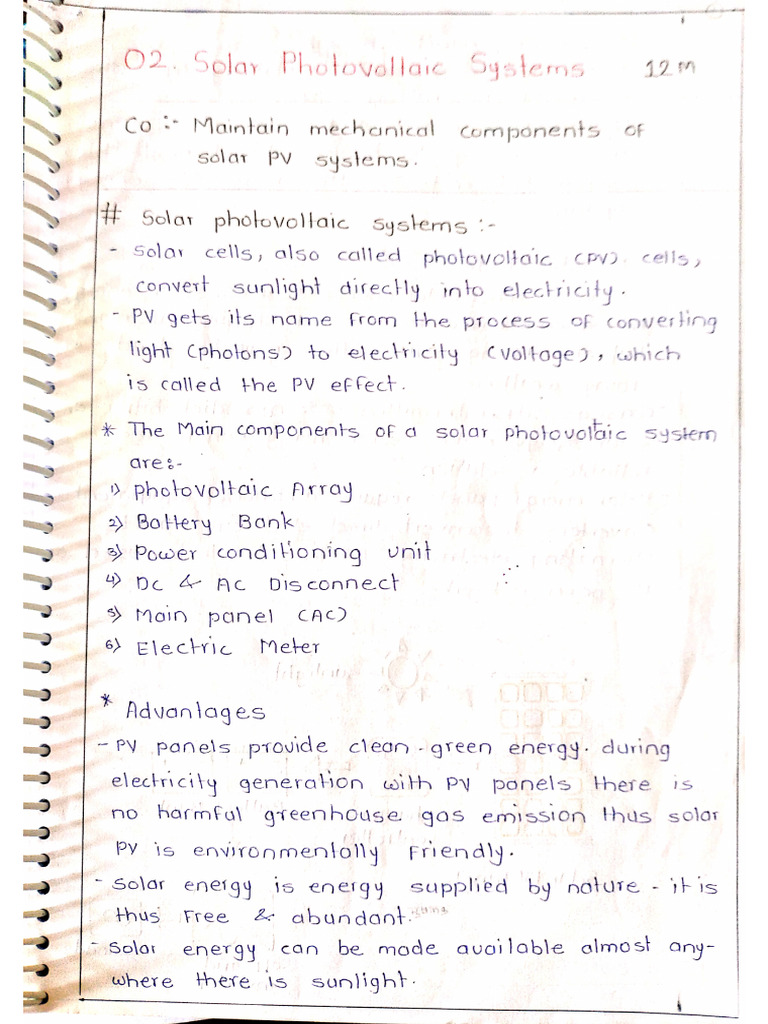 02. Solar Photovoltaic Systems 12M
CO :- Maintain mechanical components of
solar PV systems.
# Solar photovoltaic systems :-
- Solar cells, also called photovoltaic (PV). cells,
convert sunlight directly into electricity.
- PV gets its name from the process of converting
light (photons) to electricity (voltage), which
is called the PV effect.
* The Main components of a solar photovoltaic system
are:-
1) photovoltaic Array
2) Battery Bank
3) Power conditioning unit
4) DC & AC Disconnect
5) Main panel (AC)
6) Electric Meter
* Advantages
- PV panels provide clean-green energy. during
electricity generation with PV panels there is
no harmful greenhouse gas emission thus solar
PV is environmentally Friendly.
- Solar energy is energy supplied by nature - it is
thus Free & abundant.
- Solar energy can be made available almost any-
where there is sunlight.